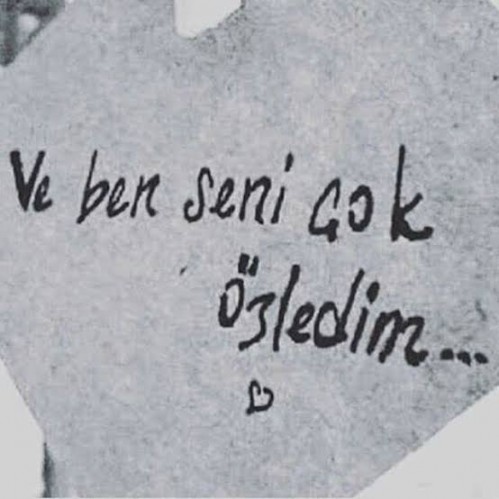 Ve ben seni çok
özledim...